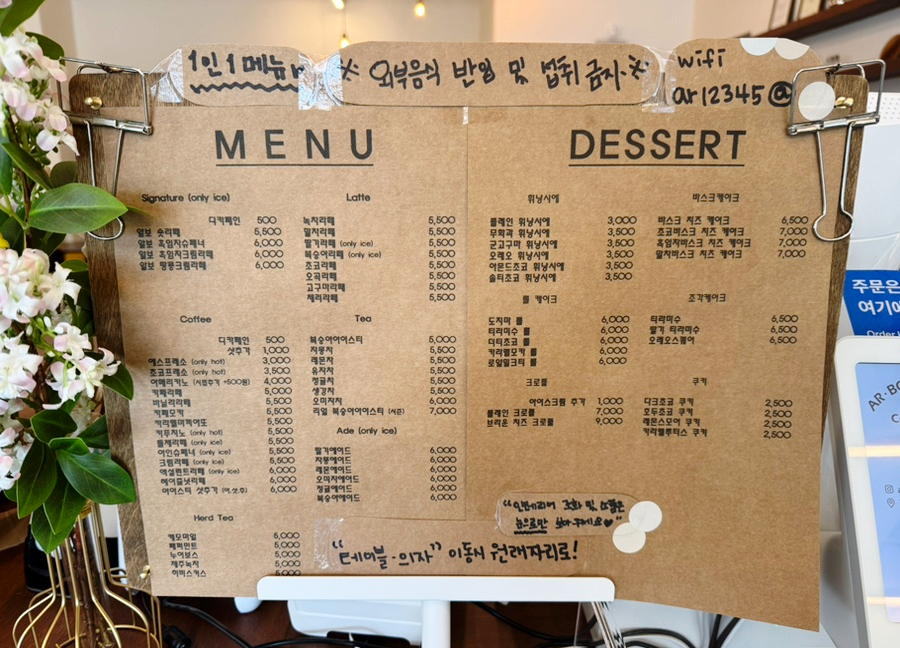 1인 1메뉴
※ 외부음식 반입 및 섭취 금지 ※
wifi
ar12345@
MENU
Signature (only ice)
디카페인 500
알보 슛라떼 5,500
알보 흑임자슈페너 6,000
알보 흑임자크림라떼 6,000
알보 땅콩크림라떼 6,000
Latte
녹차라떼 5,500
말차라떼 5,500
딸기라떼 (only ice) 5,500
복숭아라떼 (only ice) 5,500
초코라떼 5,500
오곡라떼 5,500
고구마라떼 5,500
체리라떼 5,500
Coffee
디카페인 500
샷추가 1,000
에스프레소 (only hot) 3,000
초코프레소 (only hot) 3,500
아메리카노 (시럽추가 +500원) 4,000
카페라떼 5,000
바닐라라떼 5,500
카페모카 5,500
카라멜마끼아또 5,500
카푸치노 (only hot) 5,500
돌체라떼 (only ice) 5,500
아인슈페너 (only ice) 5,500
크림라떼 (only ice) 6,000
엑설런트라떼 (only ice) 6,000
헤이즐넛라떼 6,000
아이스티 샷추가 6,000
Tea
복숭아아이스티 5,000
자몽차 5,500
레몬차 5,500
유자차 5,500
청귤차 5,500
생강차 5,500
오미자차 6,000
리얼 복숭아아이스티 (시즌) 7,000
Ade (only ice)
딸기에이드 6,000
자몽에이드 6,000
레몬에이드 6,000
오미자에이드 6,000
청귤에이드 6,000
복숭아에이드 6,000
Herd Tea
케모마일 5,000
페퍼민트 5,000
루이보스 5,000
제주녹차 5,000
히비스커스 5,000
DESSERT
휘낭시에
플레인 휘낭시에 3,000
무화과 휘낭시에 3,500
군고구마 휘낭시에 3,500
오레오 휘낭시에 3,500
아몬드초코 휘낭시에 3,500
솔티초코 휘낭시에 3,500
바스크케이크
바스크 치즈 케이크 6,500
초코바스크 치즈 케이크 7,000
흑임자바스크 치즈 케이크 7,000
말차바스크 치즈 케이크 7,000
롤 케이크
도지마 롤 6,000
티라미수 롤 6,000
더티초코 롤 6,000
카라멜모카 롤 6,000
로얄밀크티 롤 6,000
조각케이크
티라미수 6,500
딸기 티라미수 6,500
오레오스퀘어 6,500
크로플
아이스크림 추가 1,000
플레인 크로플 7,000
브라운 치즈 크로플 9,000
쿠키
다크초코 쿠키 2,500
모두초코 쿠키 2,500
레몬스모어 쿠키 2,500
카라멜로투스 쿠키 2,500
"인테리어 조화 및 소품은
눈으로만 봐주세요♥"
"테이블·의자" 이동시 원래자리로!
주문은
여기에
Order
AR·BO